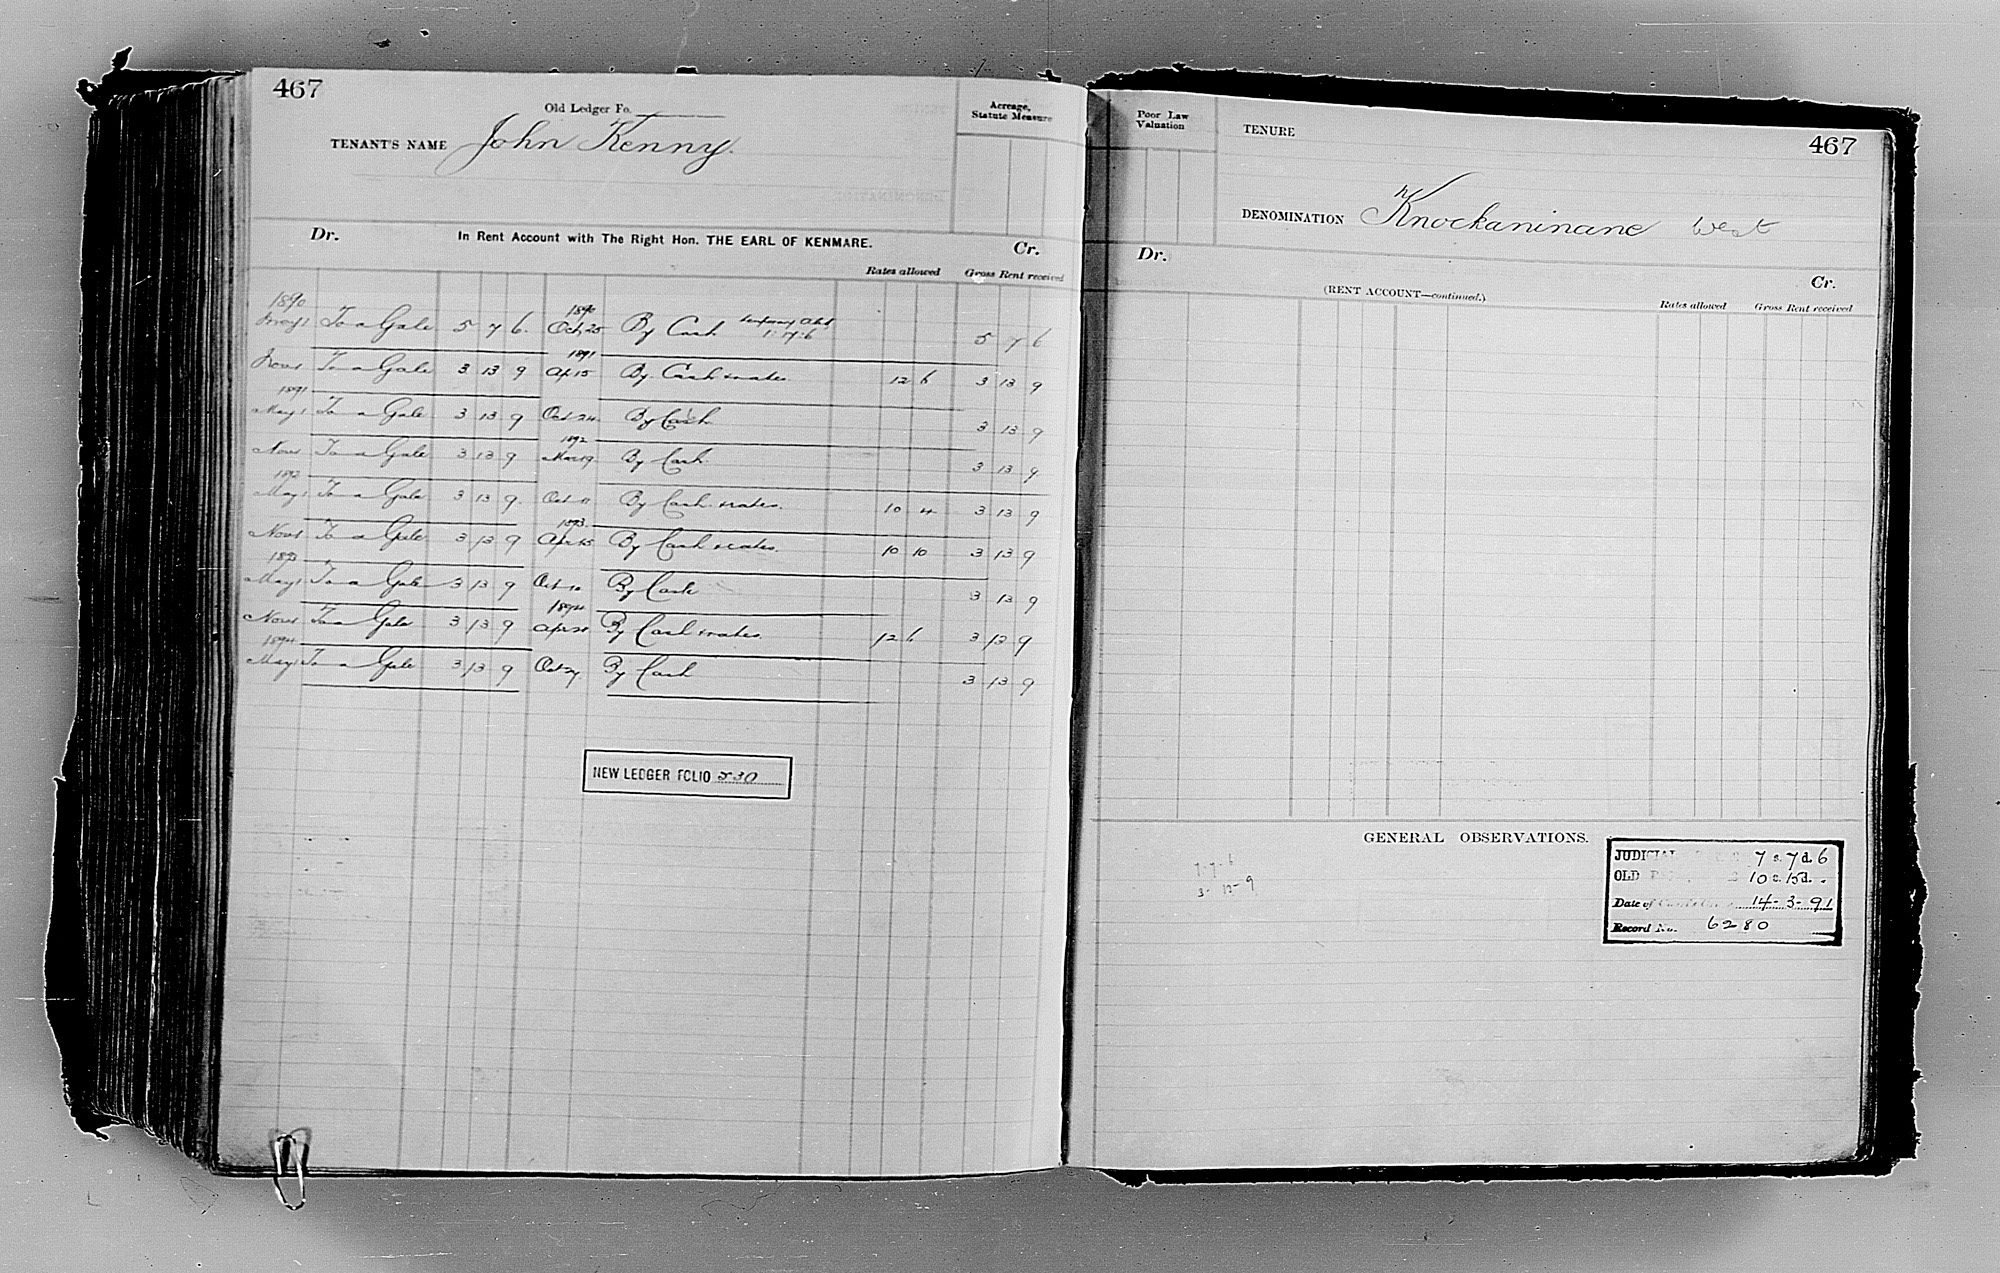 467
Old Ledger Fo.
TENANT'S NAME John Kenny.
Acreage,
Statute Measure
Dr. In Rent Account with The Right Hon. THE EARL OF KENMARE. Cr.
Rates allowed Gross Rent received
1890 1890
May 1 To a Gale 5 7 6. Oct 25 By Cash temporary Abt 1:17:6 5 7 6
1891
Nov 1 To a Gale 3 13 9 Apr 15 By Cash & rates. 12 6 3 13 9
1891
May 1 To a Gale 3 13 9 Oct 24 By Cash 3 13 9
1892
Nov 1 To a Gale 3 13 9 Mar 19 By Cash 3 13 9
1892
May 1 To a Gale 3 13 9. Oct 11 By Cash & rates. 10 4 3 13 9
1893.
Nov 1 To a Gale 3 13 9 Apr 15 By Cash & rates. 10 10 3 13 9
1893
May 1 To a Gale 3 13 9 Oct 10 By Cash 3 13 9
1894
Nov 1 To a Gale 3 13 9 Apr 28 By Cash & rates. 12 6 3 13 9
1894
May 1 To a Gale 3 13 9 Oct 27 By Cash 3 13 9
NEW LEDGER FOLIO 230
Poor Law
Valuation
TENURE
467
DENOMINATION Knockaninane West
Dr. Cr.
(RENT ACCOUNT—continued.)
Rates allowed Gross Rent received
GENERAL OBSERVATIONS.
7-7-6
3-13-9
JUDICIAL 7 s. 7 d. 6
OLD 10 s. 15 d. -
Date of 14-3-91
Record No. 6280